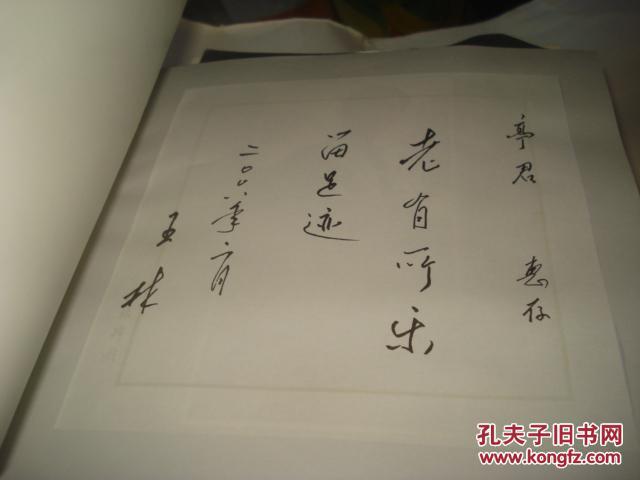 亭君 惠存
老有所乐
留足迹
二〇〇八年六月
王林
孔夫子旧书网
www.kongfz.com